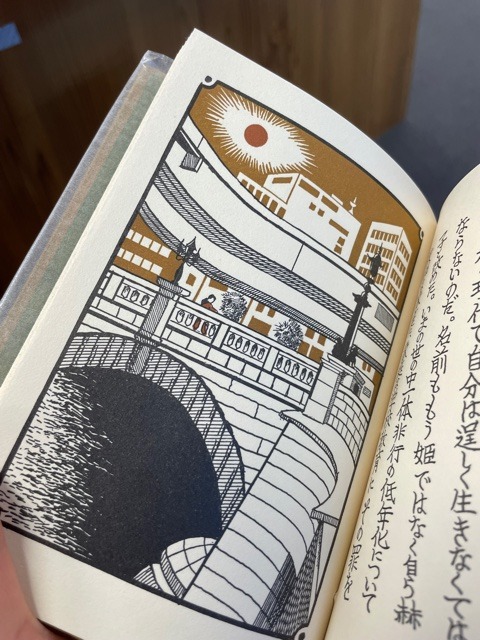 現代で自分は逞しく生きなくては
ならないのだ。名前ももう姫ではなく自ら赫
いまの世の中一体非行の低年化について
その罪を